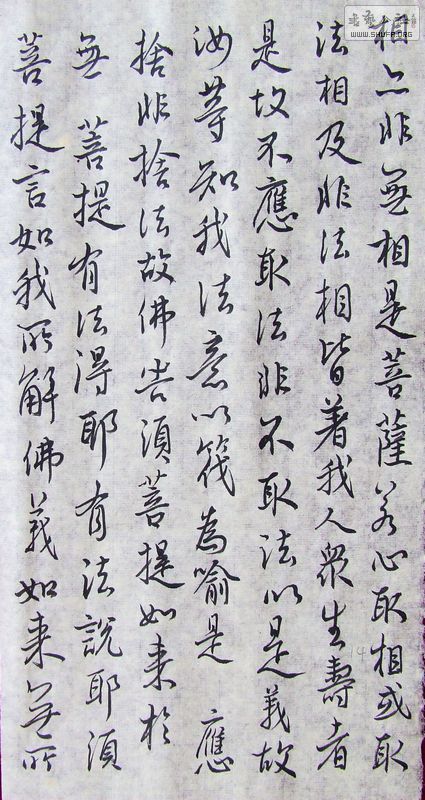 相亦非無相是菩薩若心取相或取
法相及非法相皆著我人眾生壽者
是故不應取法非不取法以是義故
汝等知我法意以筏為喻是 應
捨非捨法故佛告須菩提如来於
無 菩提有法得耶有法說耶須
菩提言如我所解佛義如来無所
WWW.SHWFA.ORG